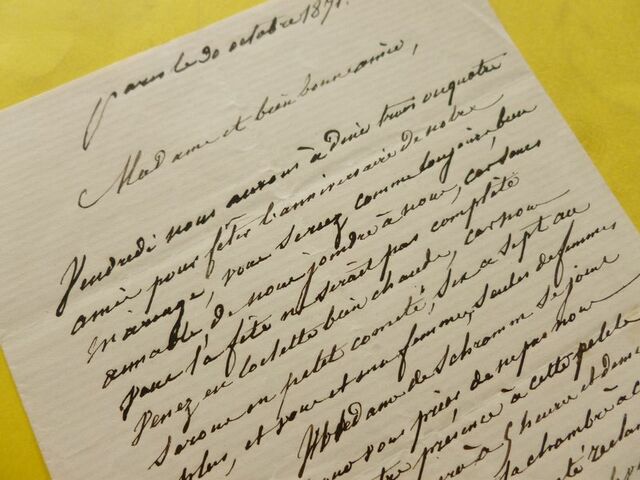 Paris le 30 octobre 1871.
Madame et bien bonne amie,
Vendredi nous aurons à diner trois ou quatre
amis pour fêter l'anniversaire de notre
mariage, vous seriez comme toujours bien
aimable de nous joindre à nous, car sans
vous la fête ne serait pas complète
Venez en toilette bien chaude, car nous
serons en petit comité, six a sept au
plus, et vous et ma femme, seules de femmes
Madame de Schramm se joint
vous prier de ne pas nous
présence à cette petite
à 5 heures et demi
sa chambre à c